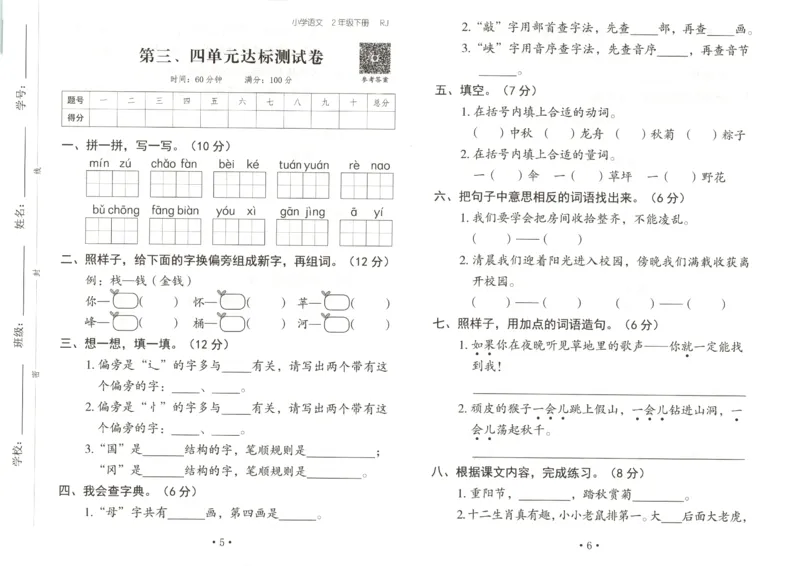 小学语文 2年级下册 RJ
第三、四单元达标测试卷
时间：60分钟 满分：100分
参考答案
题号 一 二 三 四 五 六 七 八 九 十 总分
得分
一、拼一拼，写一写。（10分）
mín zú chǎo fàn bèi ké tuán yuán rè nao
bǔ chōng fāng biàn yóu xì gān jìng ā yí
二、照样子，给下面的字换偏旁组成新字，再组词。（12分）
例：栈—钱（金钱）
你—（ ） 怀—（ ） 苹—（ ）
峰—（ ） 桶—（ ） 河—（ ）
三、想一想，填一填。（12分）
1.偏旁是“辶”的字多与____有关，请写出两个带有这
个偏旁的字：____、____。
2.偏旁是“忄”的字多与____有关，请写出两个带有这
个偏旁的字：____、____。
3.“国”是______结构的字，笔顺规则是__________；
“冈”是______结构的字，笔顺规则是________。
四、我会查字典。（6分）
1.“母”字共有______画，第四画是______。
·5·
2.“敲”字用部首查字法，先查____部，再查____画。
3.“峡”字用音序查字法，先查音序____，再查音节
______。
五、填空。（7分）
1.在括号内填上合适的动词。
（ ）中秋 （ ）龙舟 （ ）秋菊 （ ）粽子
2.在括号内填上合适的量词。
一（ ）伞 一（ ）草坪 一（ ）野花
六、把句子中意思相反的词语找出来。（6分）
1.我们要学会把房间收拾整齐，不能凌乱。
（ ）——（ ）
2.清晨我们迎着阳光进入校园，傍晚我们满载收获离
开校园。
（ ）——（ ） （ ）——（ ）
七、照样子，用加点的词语造句。（6分）
1.如果你在夜晚听见草地里的歌声——你就一定能找
到我！
2.顽皮的猴子一会儿跳上假山，一会儿钻进山洞，一
会儿荡起秋千。
八、根据课文内容，完成练习。（8分）
1.重阳节，________，踏秋赏菊________。
2.十二生肖真有趣，小小老鼠排第一。大___后面大老虎，
·6·
学号：
姓名：
班级：
学校：
线
封
密